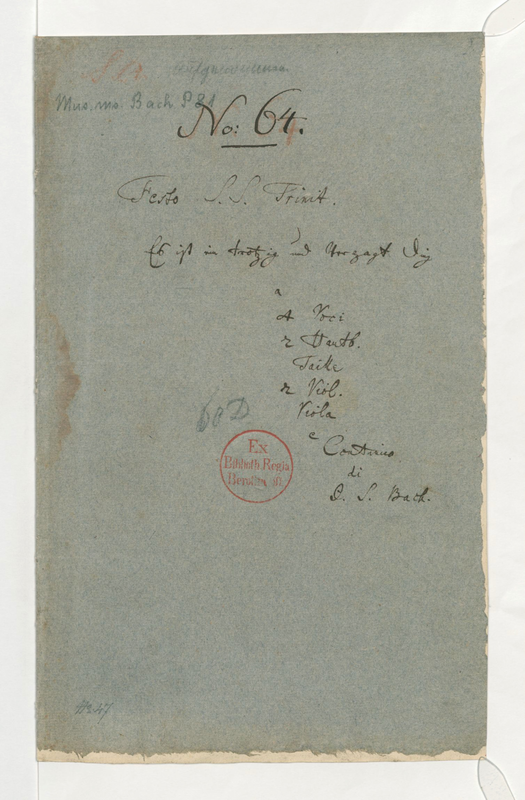 Mus. ms. Bach P 81
No: 64.
Festo S. S. Trinit.
Es ist ein trotzig und verzagt Ding
a
4 Voci
2 Hautb.
Taille
2 Viol.
Viola
e
Continuo
di
J. S. Bach.
Ex
Biblioth. Regia
Berolin